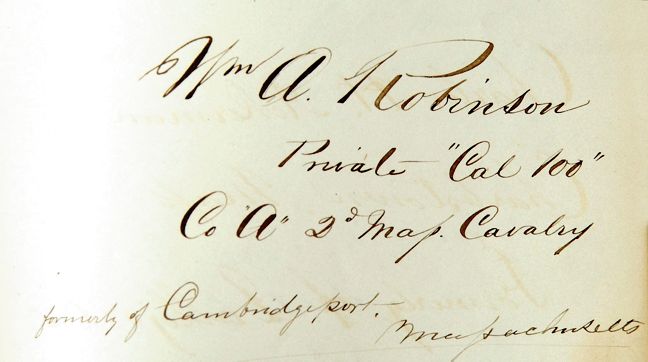 Wm A. Robinson
Private "Cal 100"
Co "A" 2d Mass. Cavalry
formerly of Cambridgeport.
Massachusetts